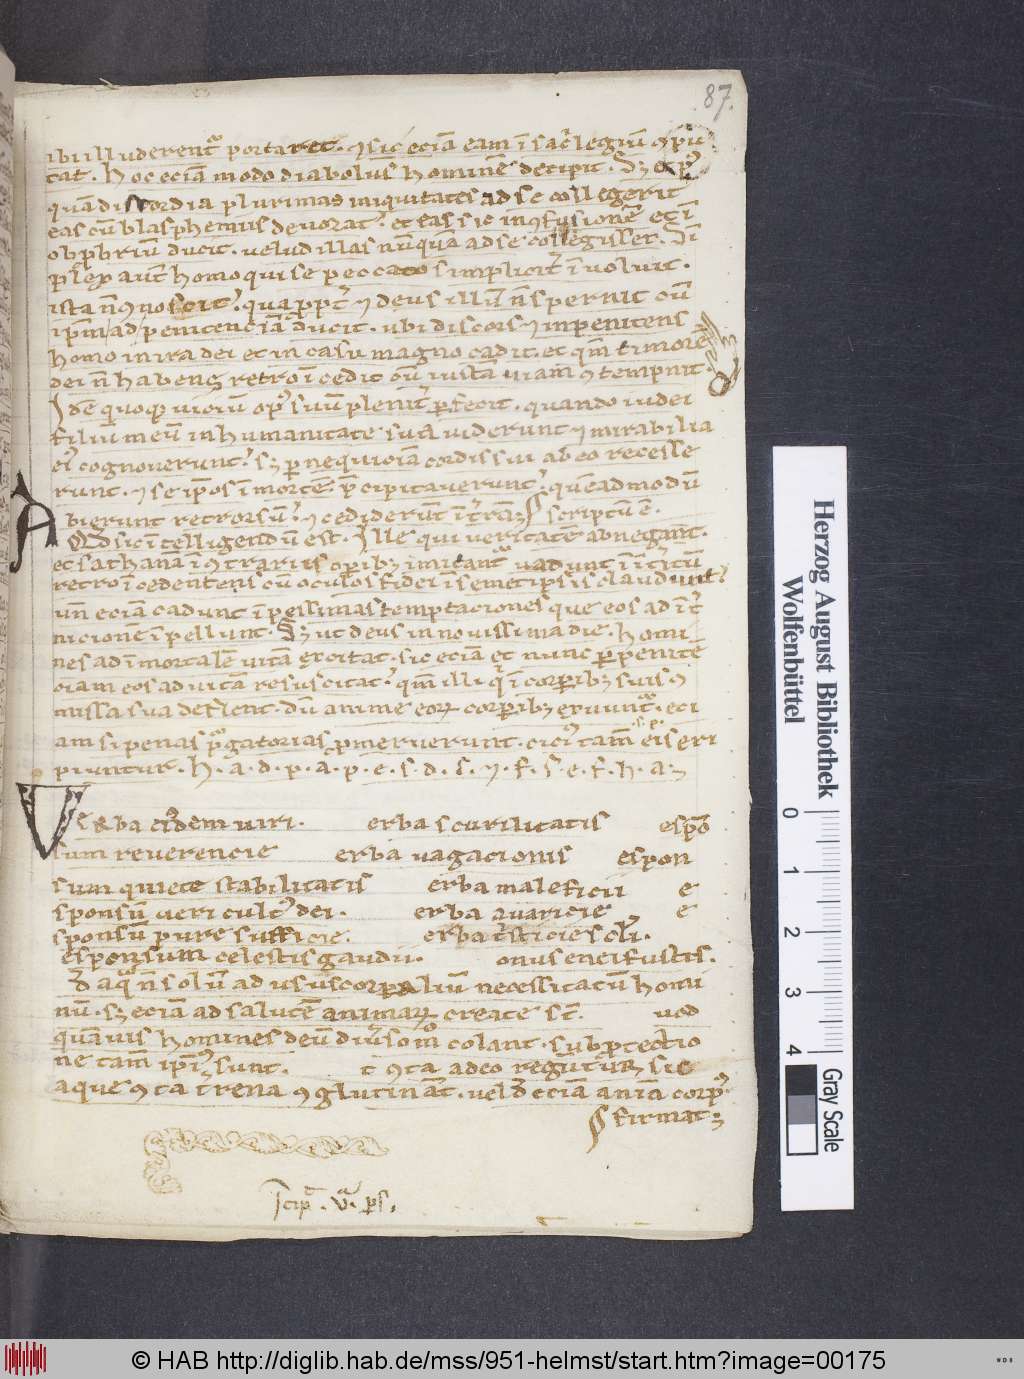 87.
ibi illuderent᷑ portaret. ⁊ sic eciā eam ī sac̾legiū ꝯpu
tat. hoc eciā modo diabolus hominē decipit. Sꝫ
quā discordia plurimas iniquitates ad se collegerit
eas cū blasphemiis deuorat. et eas sic in ꝯfusionē et ī
obp̄briū ducit. uelud illas nūquā ad se collegisset. Si
aut̄ homo qui se peccato simplicit̾ īuoluit.
ista n̄ ꝯnoscit. quapp̄t̾ ⁊ deus illū n̄ spernit cū
ip̄m ad penitenciā ducit. ubi discors ⁊ inpenitens
homo in ira dei et in casu magno cadit. et qm̄ timorē
dei n̄ habens retro īcedit cū iustā uiam ꝯtempnit.
Idē quoqꝫ uiciū op᷒ suū plenit̾ ꝑfecit. quando iudei
filiu meū in humanitate sua uiderunt ⁊ mirabilia
ei᷒ cognouerunt. sꝫ ꝑ nequiciā cordis sui ab eo recesse
runt. ⁊ se ip̄os ī mortē p̄cipitauerunt. quēadmodū
Abierunt retrorsū. ⁊ cediderūt ī t̾rā. scriptū ē.
Qd sic intelligendū est. Ille qui ueritatē abnegant.
et sathanā ī ꝯtrariis oꝑibꝫ imitant᷑ uadunt ī īt̾itū
retro īcedentens cū oculos fidei ī semetipsis claudunt.
un̄ eciā cadunt ī pessimas temptaciones que eos ad īt̾
nicionē īpellunt. Sꝫ ut deus in nouissima die. homi
nes ad īmortalē uitā excitat. sic eciā et nunc ꝑ penitē
ciam eos ad uitā resuscitat. qm̄ illi q̇ ī corꝑibꝫ suis ꝯ
missa sua deflent. dū anime eoꝝ corꝑibꝫ exuunt᷑. eci
am si penas p᷑gatorias ꝓmeruerunt. cici᷒ tam̄ eis eri
piuntur. h. a. d. p. a. p. e. s. d. s. ⁊. f. s. e. f. h. a.
Verba eidem uiri. erba scurilitatis espō
sum reuerencie erba uagacionis espon
sum quiete stabilitatis erba maleficii e
sponsū ueri cult᷒ dei. erba auaricie e
sponsū pure sufficie. erba t̾sticie scl̄i.
esponsum celestis gaudii. onus enei fustis.
d aq̄ n̄ solū ad usus corꝑaliū necessitatū homi
nū. sꝫ eciā ad salutē animaꝝ create st̄. uod
quāuis homines deū diu̾somo colant. sub ꝓtectio
ne tam̄ ipi᷒ sunt. t ꝯta adeo regunt᷑ sic
aque ꝯta t̾rena ꝯglutināt. uel
firmat
Icip᷑. v᷑. ps.
Herzog August Bibliothek
Wolfenbüttel
0 1 2 3 4
Gray Scale
© HAB http://diglib.hab.de/mss/951-helmst/start.htm?image=00175